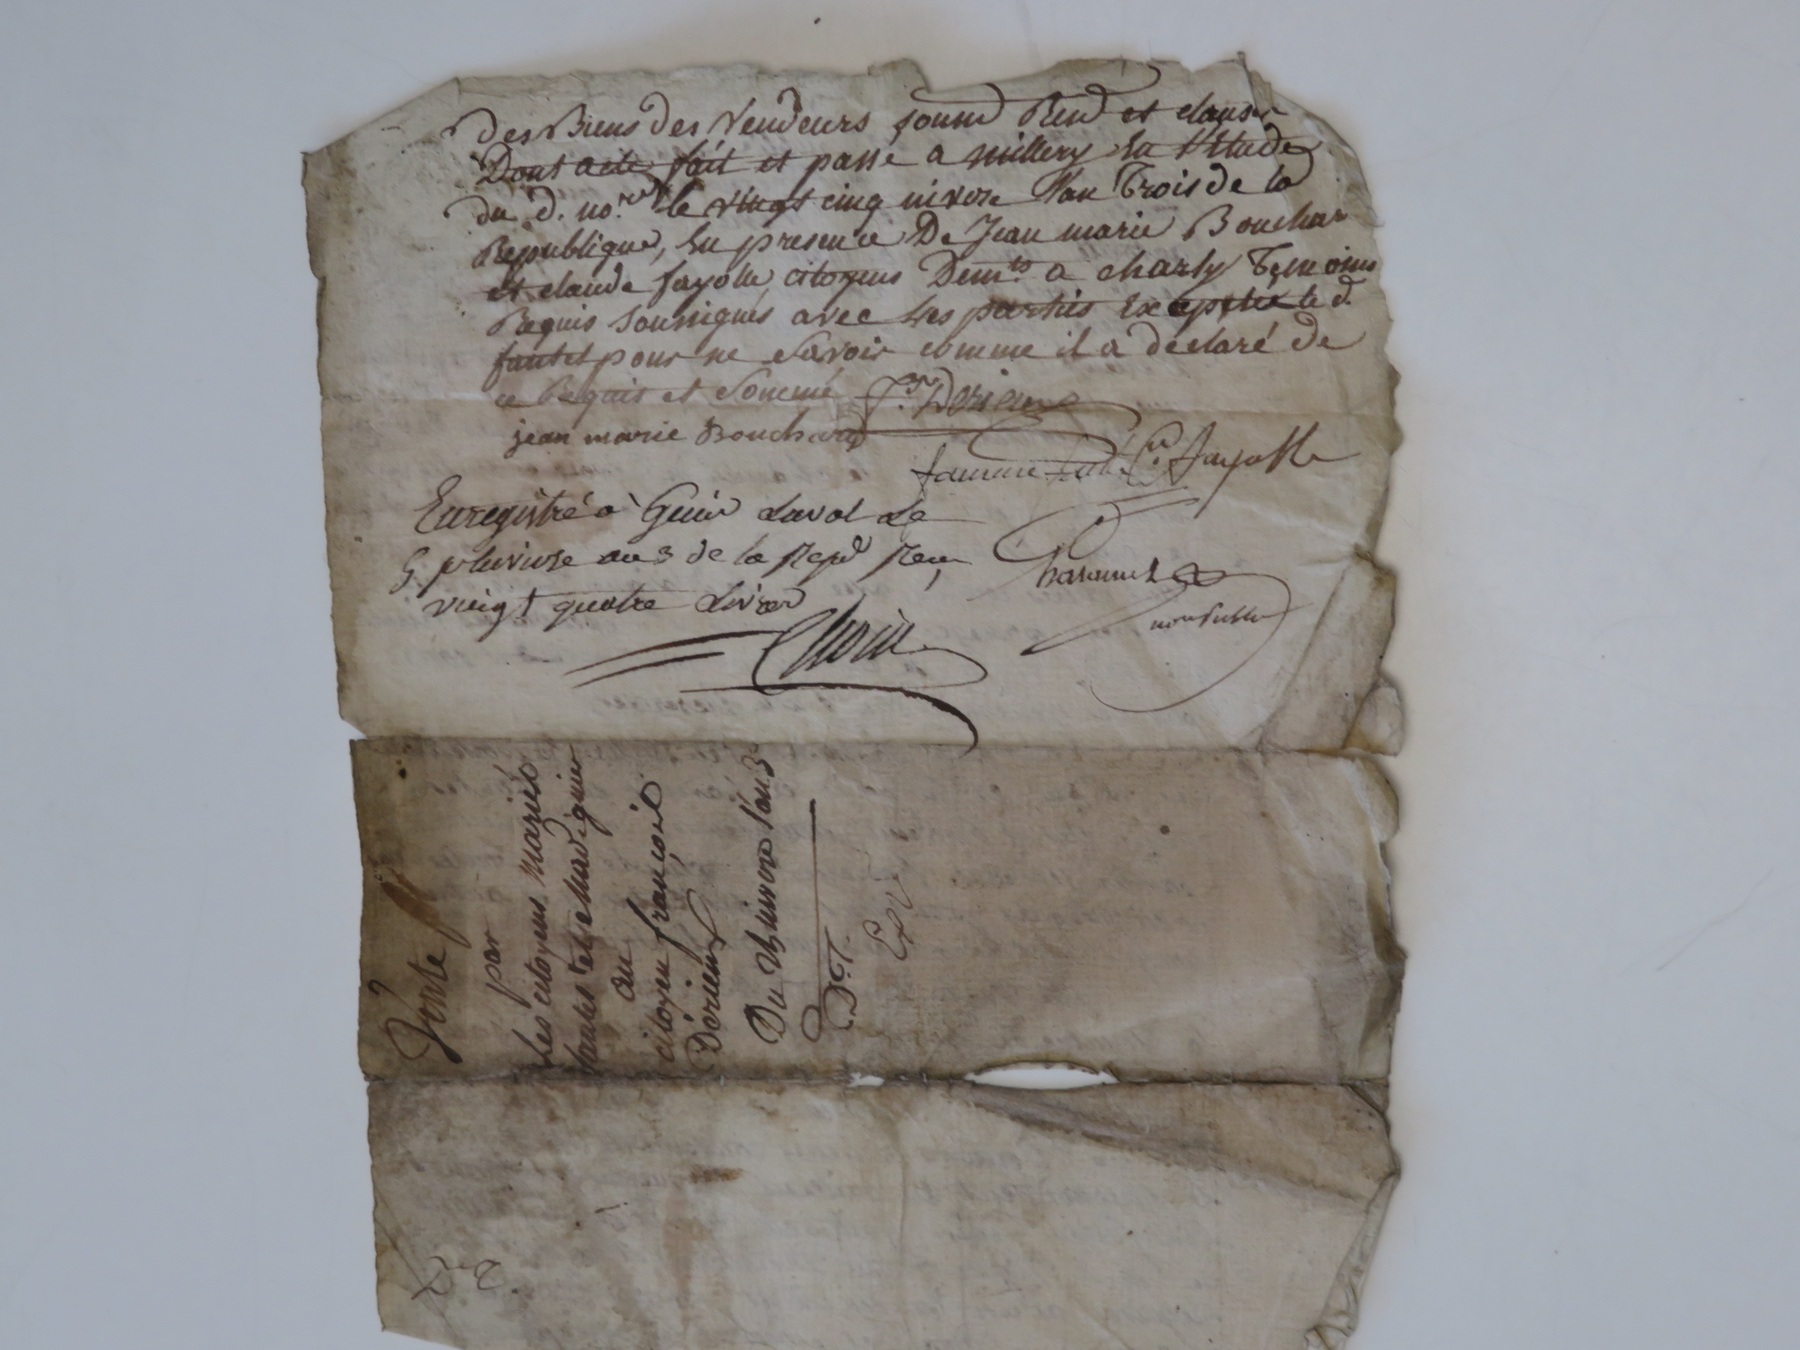 des Biens des Vendeurs soumd Rend et clauses
Dont acte fait et passé a millery En l'Etude
du d. no.re le vingt cinq nivose l'an Trois de la
Republique, En presence De Jean marie Bouchar
et claude fayolle, citoyens Dem.ts a charly Temoins
Requis soussignés avec les parties Excepté le d.
fautet pour ne savoir comme il a déclaré de
ce Requis et sommé f.s Derieux
jean marie Bouchard
C. fayolle
Enregistré a Genis Laval Le
5 pluviose an 3 de la Repd Reçu
vingt quatre Livres
Vente
par
Les citoyens mariés
au
citoyen françois
Derieux
Du nivose l'an 3